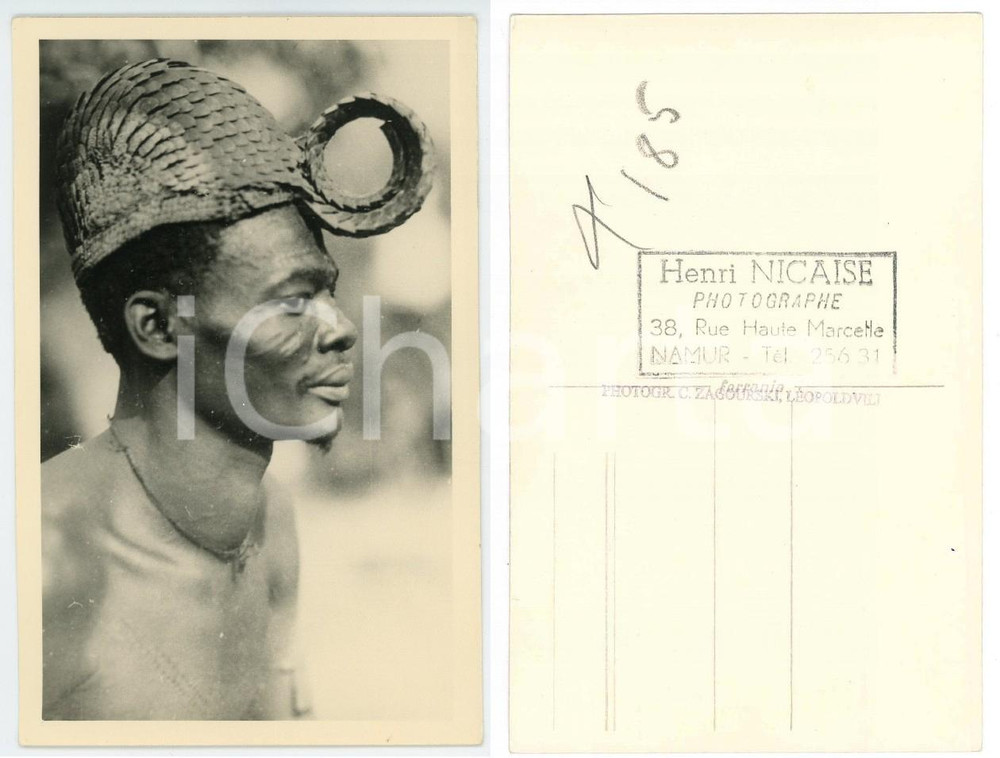 iCharta
185
Henri NICAISE
PHOTOGRAPHE
38, Rue Haute Marcelle
NAMUR - Tél. 256.31
ferrania
PHOTOGR. C. ZAGOURSKI, LÉOPOLDVILL